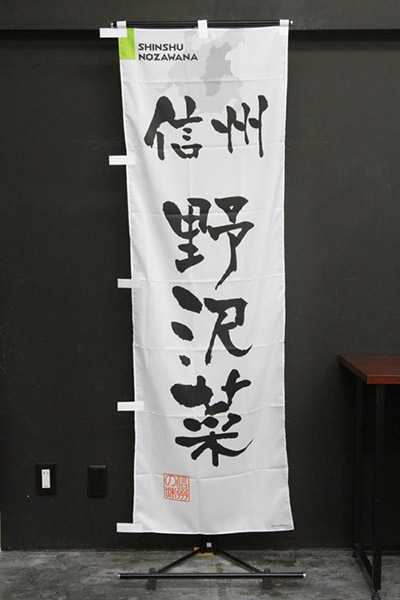 SHINSHU
NOZAWANA
信州
野沢菜
信州
の味